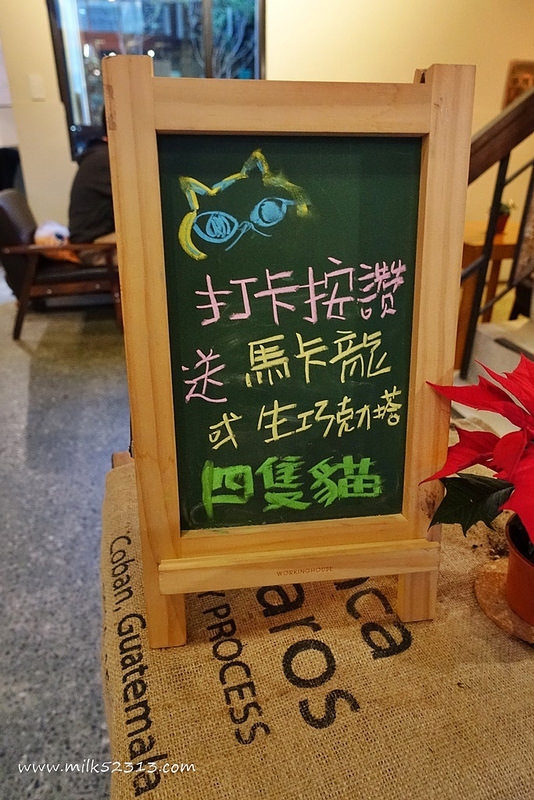 打卡按讚
送 馬卡龍
或 生巧克力塔
四隻貓
WORKINGHOUSE
Coban, Guatemala
PROCESS
aros
ca
www.milk52313.com